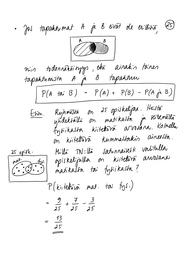 25
• Jos tapahtumat A ja B eivät ole erillisiä,
A B
niin todennäköisyys, että ainakin toinen
tapahtumista A ja B tapahtuu
P(A tai B) = P(A) + P(B) - P(A ja B)
Esim. Ryhmässä on 25 opiskelijaa. Heistä
yhdeksällä on matikasta ja seitsemällä
fysiikasta kiitettävä arvosana. Kolmella
on kiitettävä kummastakin aineesta.
Millä TN:llä satunnaisesti valitulla
opiskelijalla on kiitettävä arvosana
matikasta tai fysiikasta?
25 opisk.
P(kiitettävä mat. tai fys.)
= 9/25 + 7/25 - 3/25
= 13/25